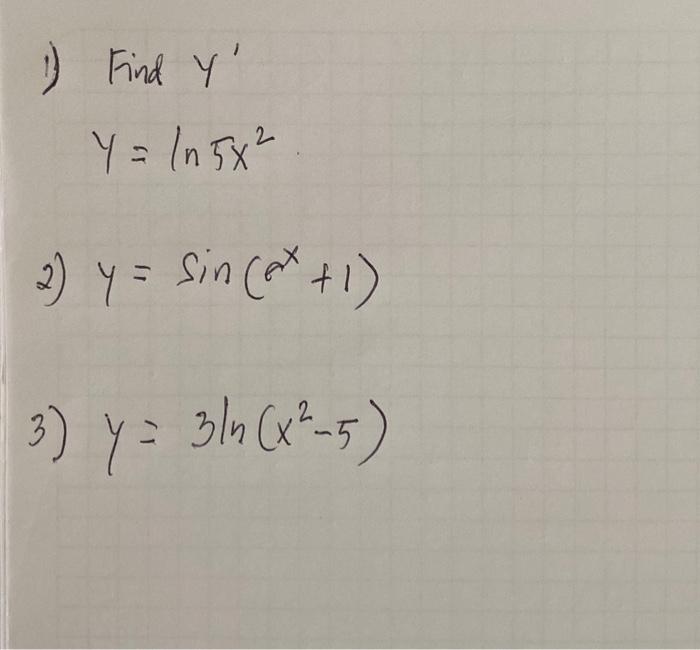 1) Find y'
y = ln 5x²
2) y = Sin (eˣ + 1)
3) y = 3ln (x² - 5)